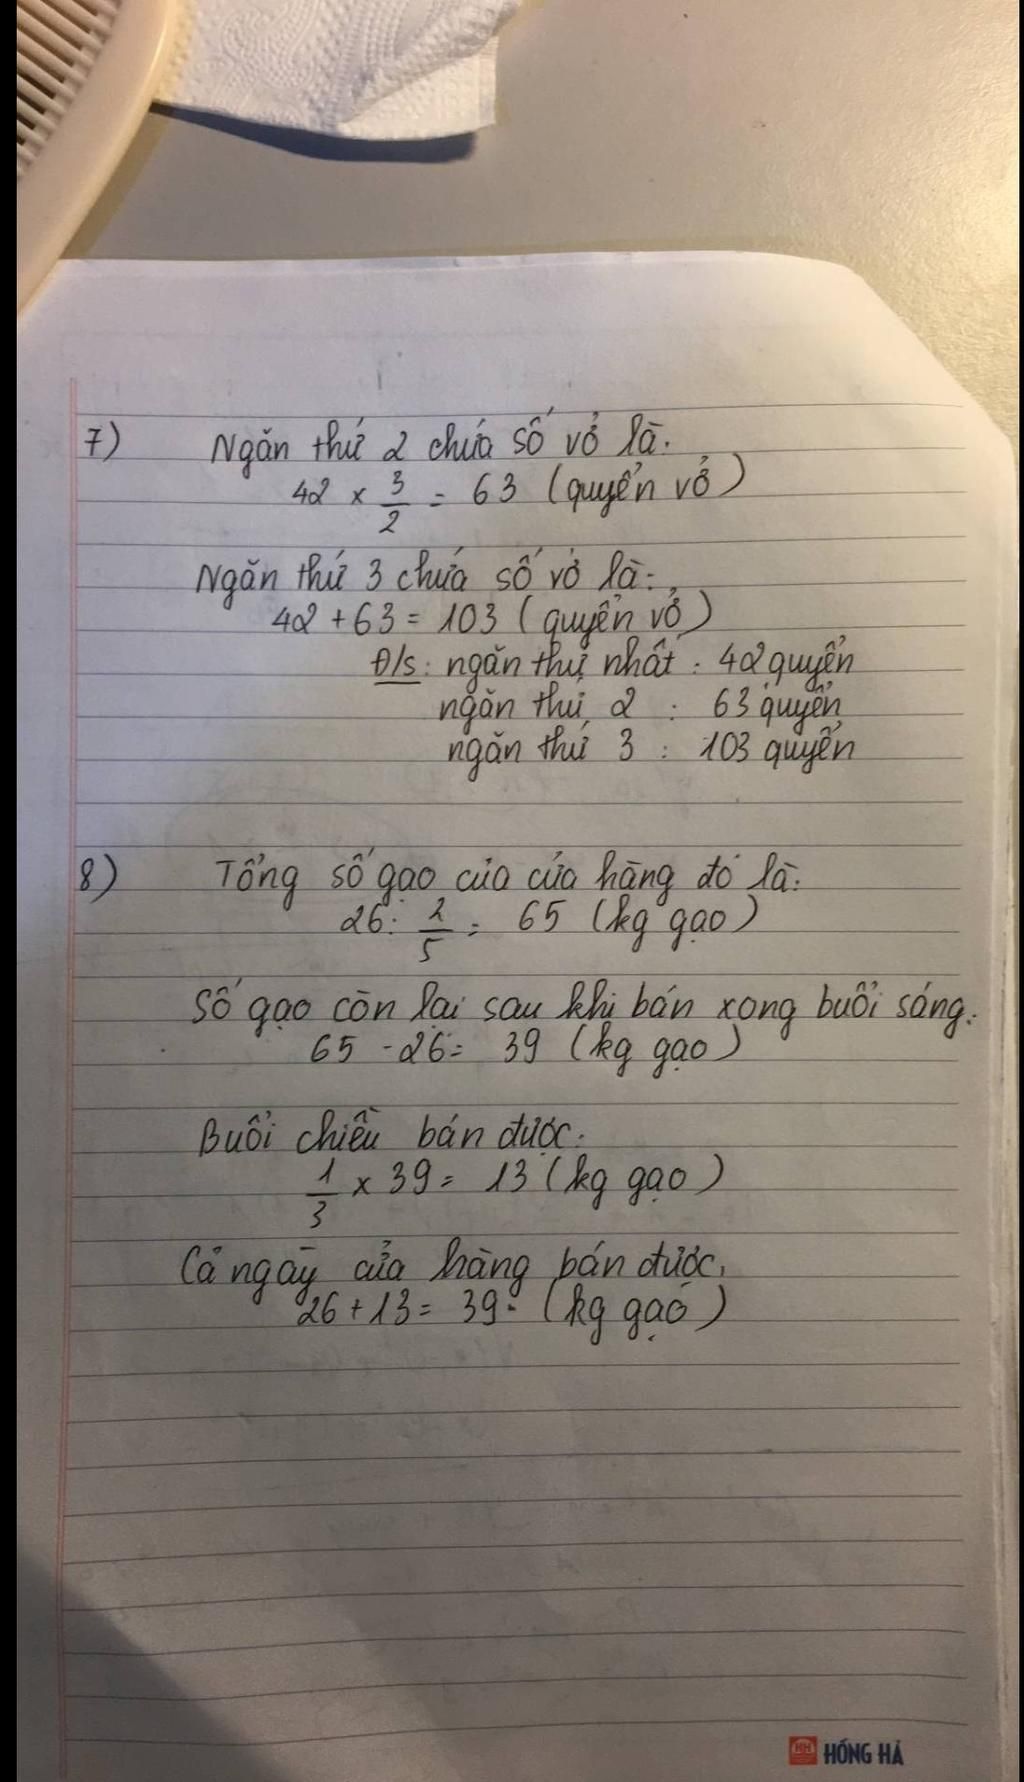 7) Ngăn thứ 2 chứa số vở là:
42 × 3/2 = 63 (quyển vở)
Ngăn thứ 3 chứa số vở là:
42 + 63 = 103 (quyển vở)
Đ/s: ngăn thứ nhất : 42 quyển
ngăn thứ 2 : 63 quyển
ngăn thứ 3 : 103 quyển
8) Tổng số gạo của cửa hàng đó là:
26 : 2/5 = 65 (kg gạo)
Số gạo còn lại sau khi bán xong buổi sáng:
65 - 26 = 39 (kg gạo)
Buổi chiều bán được:
1/3 × 39 = 13 (kg gạo)
Cả ngày cửa hàng bán được:
26 + 13 = 39. (kg gạo)
HH HỒNG HÀ